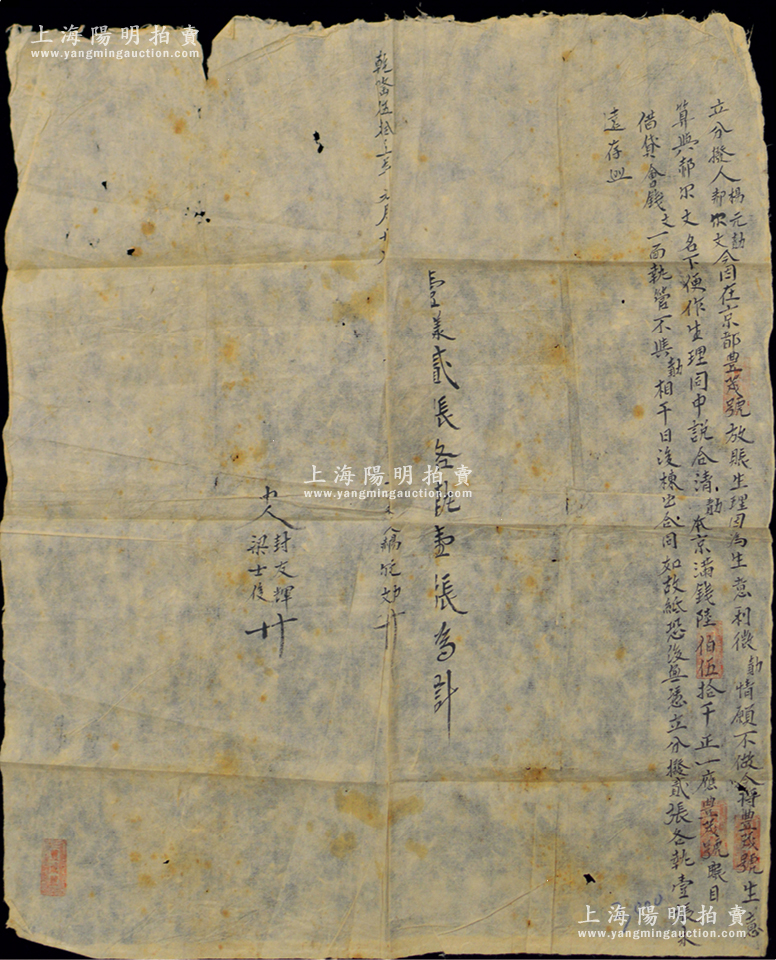 立分撥人楊元勛郝永文合同在京都豊茂號放賬生理因為生意利微勛情願不做今将豊茂號生意
算與郝永文名下便作生理同中説合清勛本京滿錢陸伯伍拾千正一應豊茂號賬目
借貸會錢文一面執管不與勛相干日後揀出合同如故紙恐後無憑立分撥貳張各執壹張永
遠存照
合立美貳張各執壹張為計
乾隆伍拾三年元月十
立 人楊元勛 十
中人 封文輝 梁士俊 十
上海陽明拍賣
www.yangmingauction.com
上海陽明拍賣
www.yangmingauction.com
上海陽明拍賣
www.yangmingauction.com